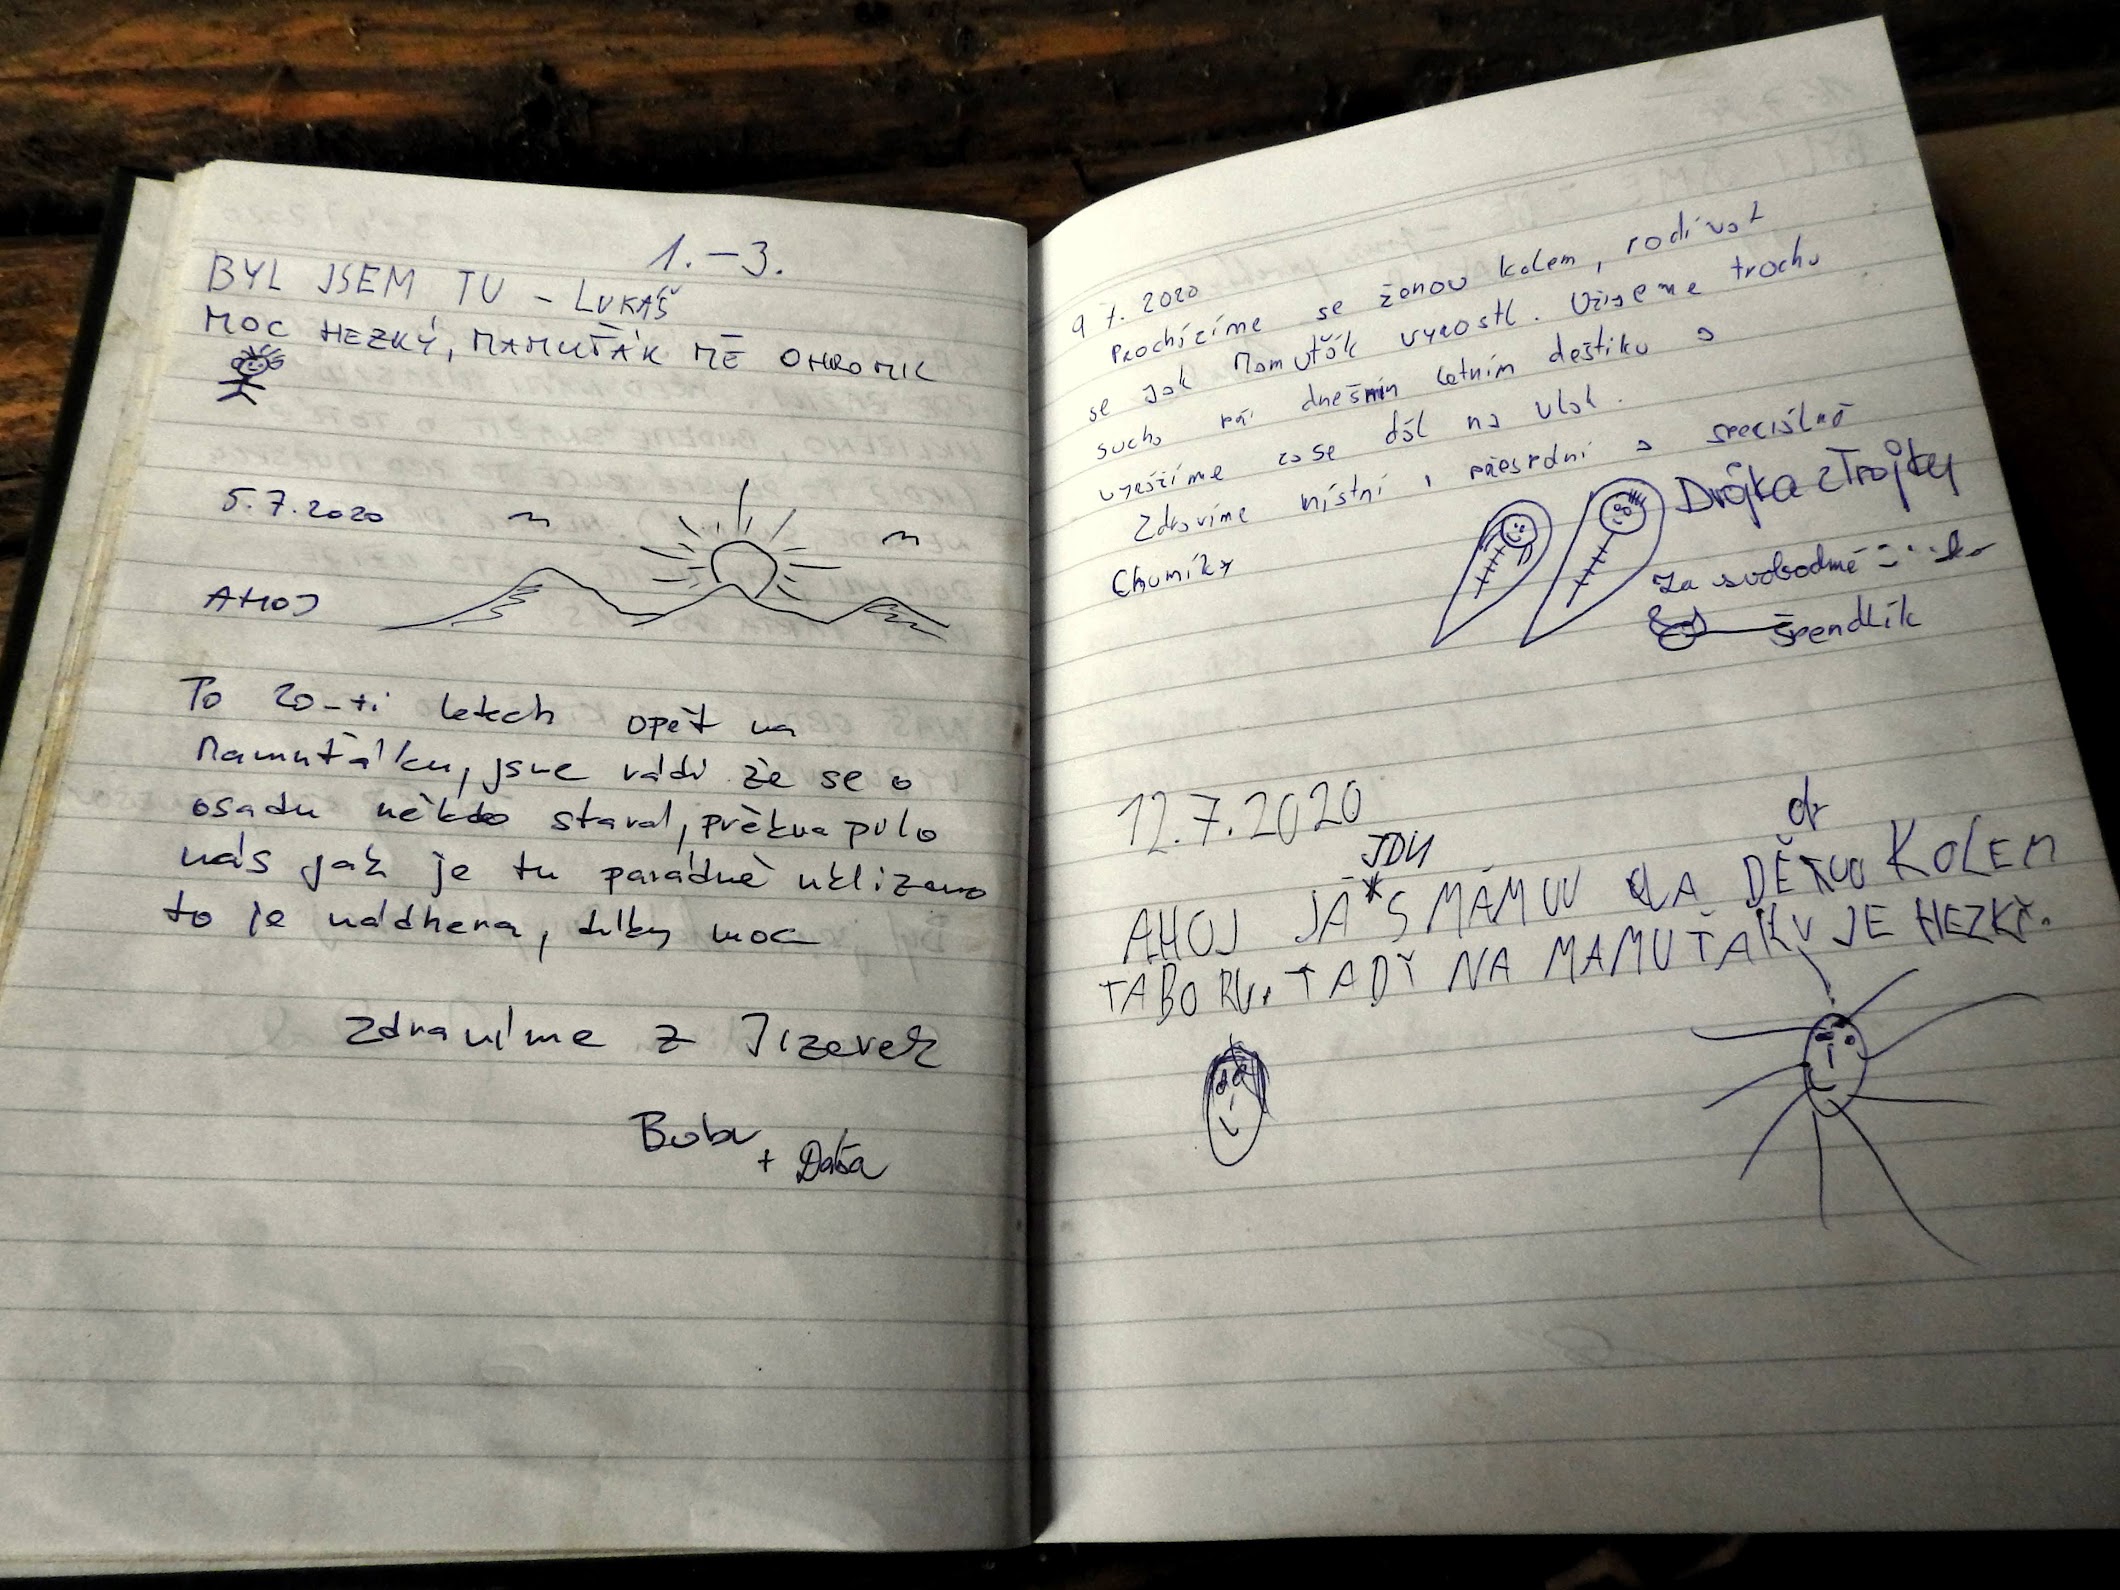 1.–3.
BYL JSEM TU – LUKÁŠ
MOC HEZKÝ, MAMUŤÁK MĚ OHROMIL
5.7.2020
AHOJ
Po 20-ti letech opět na
Mamuťáku, jsme rádi že se o
osadu někdo staral, překvapilo
nás jak je tu parádně uklizeno
to je nádhera, díky moc
Zdravíme z Jizerek
Bobu
+ Dáša
9 7. 2020
Procházíme se ženou kolem, podívat
se jak Mamuťák vyrostl. Užijeme trochu
sucho při dnešním letním deštiku a
vyrážíme zase dál na vlak.
Zdravíme místní i přespolní a speciálně
Chumíky
Dvojka z Trojky
Za svobodné
špendlík
12.7.2020
JDU
AHOJ JÁ S MÁMUU A DĚDUU KOLEM
TABORU. TADY NA MAMUŤÁKU JE HEZKY.